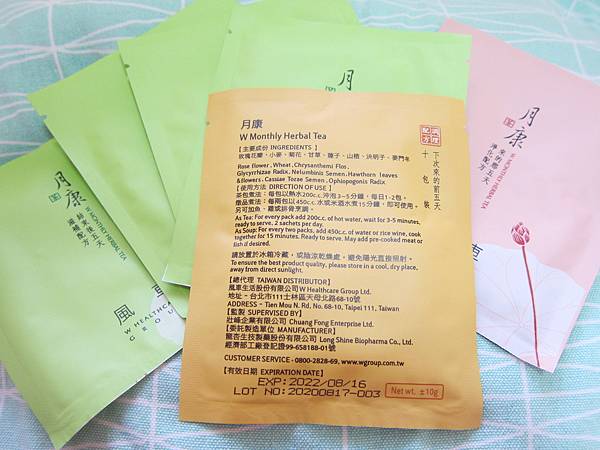 月康
W Monthly Herbal Tea
【主要成份 INGREDIENTS】
玫瑰花瓣、小麥、菊花、甘草、蓮子、山楂、決明子、麥門冬
Rose flower, Wheat, Chrysanthemi Flos,
Glycyrrhizae Radix, Nelumbinis Semen, Hawthorn leaves
& flowers, Cassiae Torae Semen, Ophiopogonis Radix.
【使用方法 DIRECTION OF USE】
茶包煮法：每包以熱水200c.c.沖泡3~5分鐘，每日1-2包。
燉品煮法：每兩包以450c.c.水或米酒水煮15分鐘，即可使用。
另可加魚、雞或排骨烹調。
As Tea: For every pack add 200cc. of hot water, wait for 3-5 minutes,
ready to serve, 2 sachets per day.
As Soup: For every two packs, add 450c.c. of water or rice wine, cook
together for 15 minutes. Ready to serve. May add pre-cooked meat or
fish if desired.
請放置於冰箱冷藏，或陰涼乾燥處，避免陽光直接照射。
To ensure the best product quality, please store in a cool, dry place,
away from direct sunlight.
【總代理 TAIWAN DISTRIBUTOR】
風車生活股份有限公司 W Healthcare Group Ltd.
地址 - 台北市111士林區天母北路68-10號
ADDRESS - Tien Mou N. Rd. No. 68-10, Taipei 111, Taiwan
【監製 SUPERVISED BY】
壯峰企業有限公司 Chuang Fong Enterprise Ltd.
【委託製造單位 MANUFACTURER】
龍杏生技製藥股份有限公司 Long Shine Biopharma Co., Ltd.
經濟部工廠登記證99-658188-01號
CUSTOMER SERVICE - 0800-2828-69, www.wgroup.com.tw
【有效日期 EXPIRATION DATE】
EXP: 2022/08/16
LOT NO: 20200817-003
Net wt. ±10g
下次來的前五天
十包裝
月康
來的那五天
淨化配方
W MONTHLY HERBAL TEA
車
月康
結束後七天
滋補配方
W MONTHLY HERBAL TEA
風車
W HEALTHCARE
GROUP
月